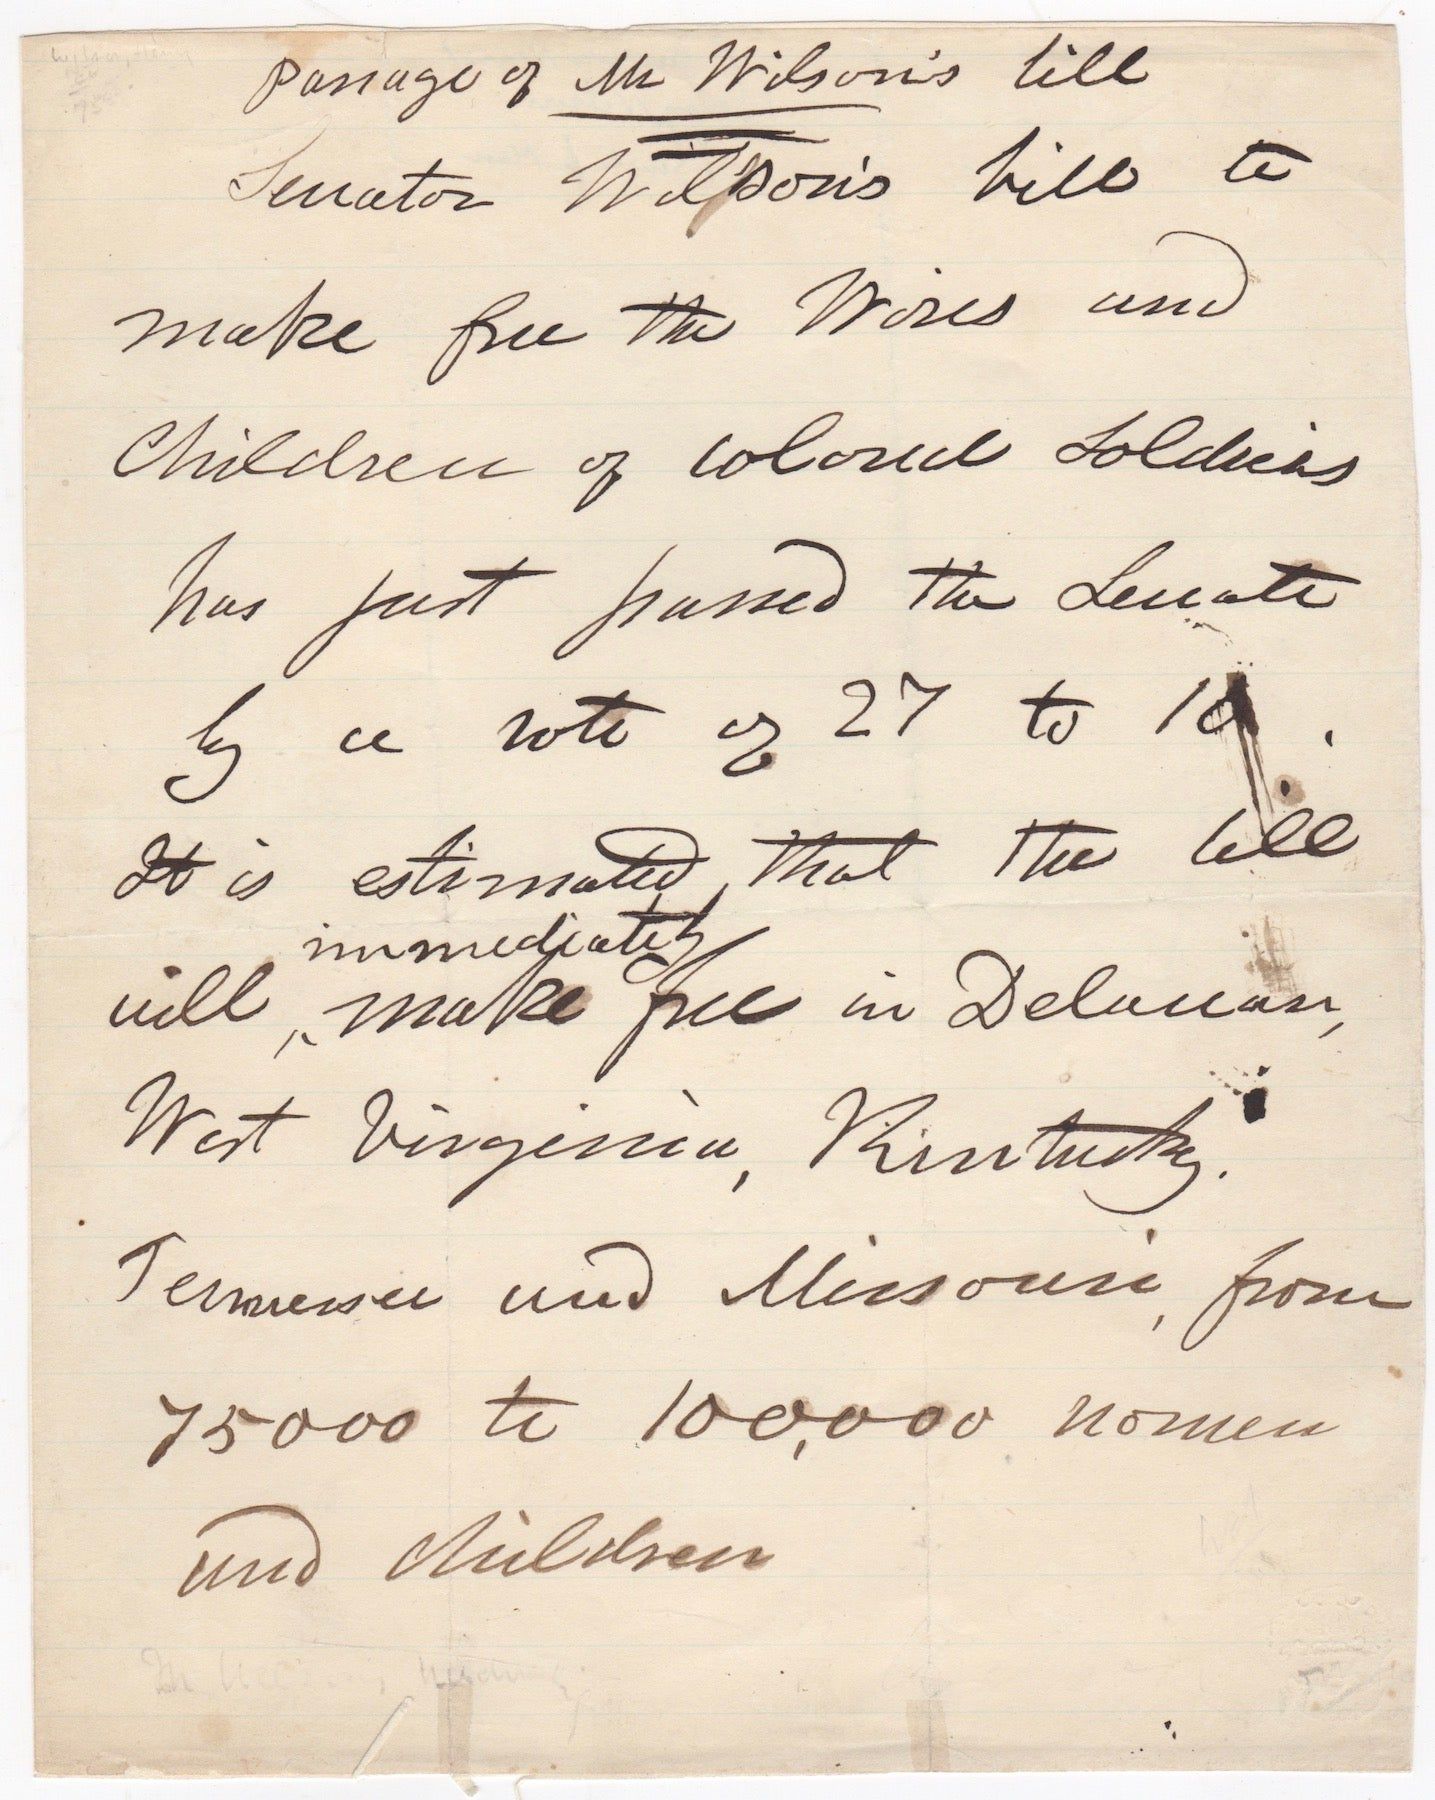 Passage of Mr Wilson's bill
Senator Wilson's bill to
make free the Wives and
Children of colored Soldiers
has just passed the Senate
by a vote of 27 to 10.
It is estimated, that the bill
immediately
will, make free in Delaware,
West Virginia, Kentucky.
Tennessee and Missouri, from
75000 to 100,000 women
and children